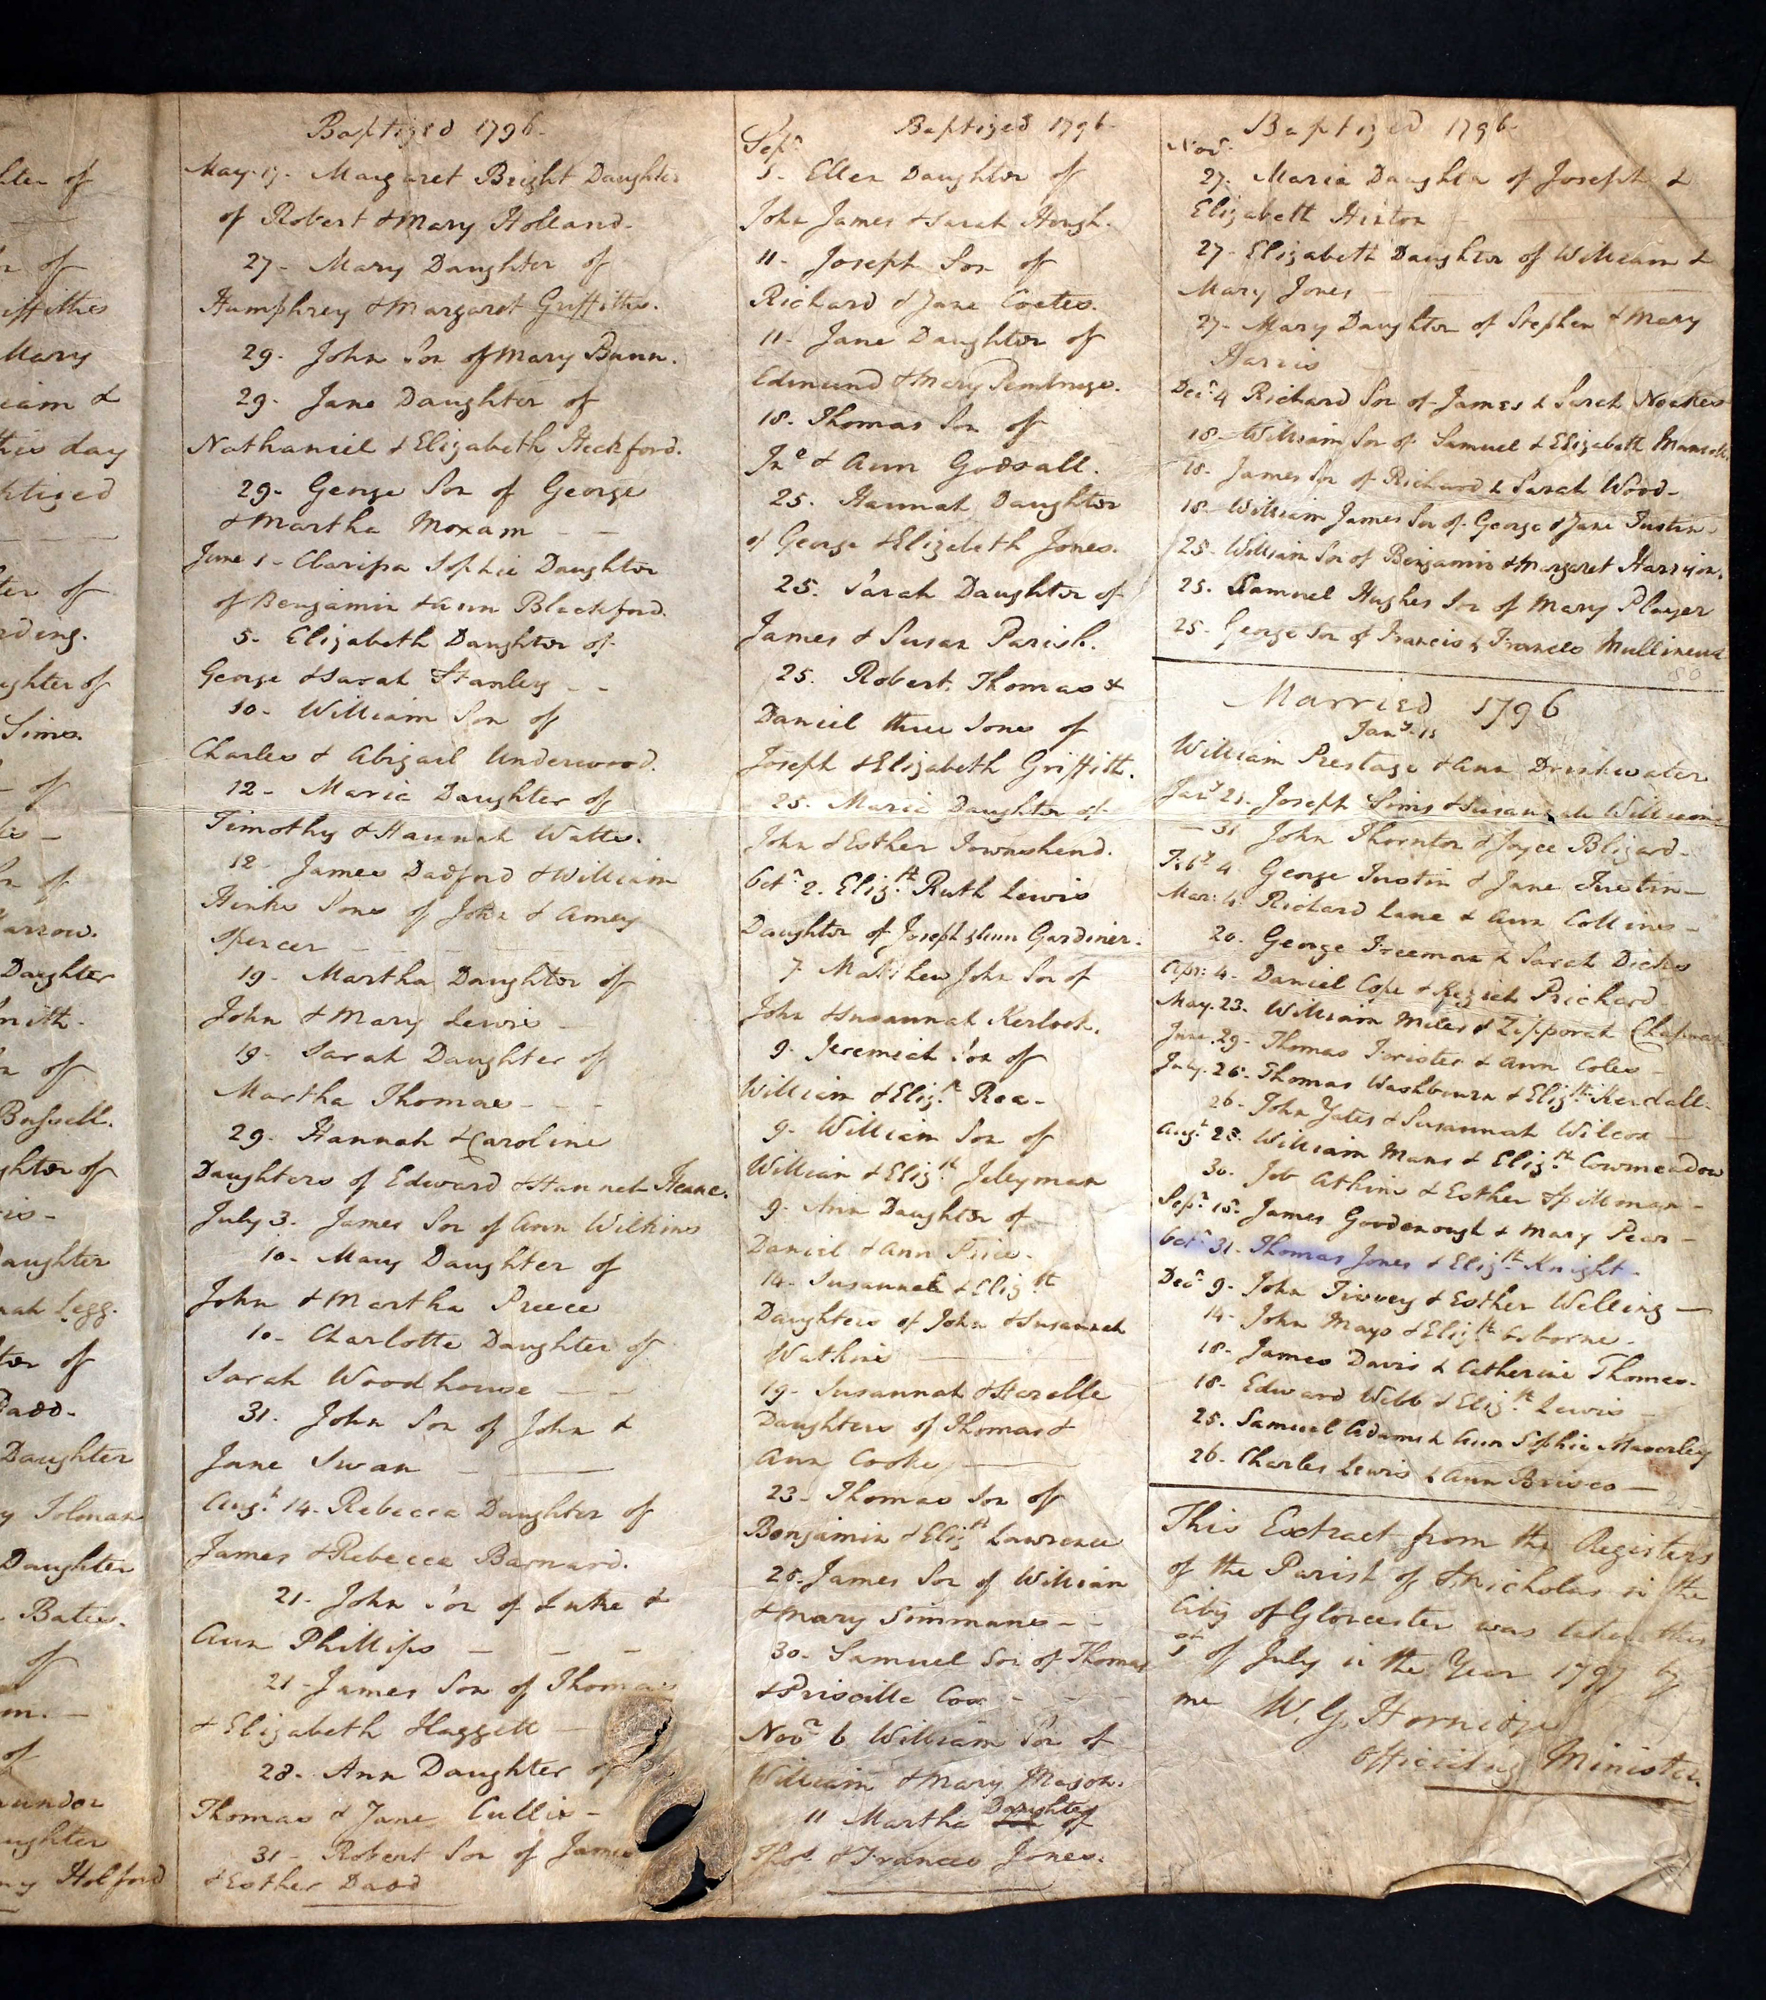 hter of
of
iffithes
Mary
iam &
this day
ptized
ter of
rding.
ughter of
Sims.
of
of
arrow.
Daughter
mith.
of
Bussell.
ghter of
Daughter
nah Legg.
ter of
Dadd.
Daughter
y Tolman
Daughter
Bates.
of
m.
of
aundor
aughter
ny Holford
Baptized 1796.
May. Margaret Bright Daughter
of Robert & Mary Holland.
27. Mary Daughter of
Humphrey & Margaret Griffiths.
29. John Son of Mary Bunn.
29. Jane Daughter of
Nathaniel & Elizabeth Heckford.
29. George Son of George
& Martha Moxam
June 1. Clarissa Sophia Daughter
of Benjamin & Ann Blackford.
5. Elizabeth Daughter of
George & Sarah Stanley
10. William Son of
Charles & Abigail Underwood.
12. Maria Daughter of
Timothy & Hannah Watts.
12. James Dadford & William
Hinks Sons of John & Amey
Spencer
19. Martha Daughter of
John & Mary Lewis
19. Sarah Daughter of
Martha Thomas
29. Hannah & Caroline
Daughters of Edward & Hannah Heane.
July 3. James Son of Ann Wilkins
10. Mary Daughter of
John & Martha Preece
10. Charlotte Daughter of
Sarah Woodhouse
31. John Son of John &
Jane Swan
Augt. 14. Rebecca Daughter of
James & Rebecca Barnard.
21. John Son of Luke &
Ann Phillips
21. James Son of Thomas
& Elizabeth Haggett
28. Ann Daughter of
Thomas & Jane Cullis
31. Robert Son of James
& Esther Dadd
Baptized 1796.
Sepr.
5. Ellen Daughter of
John James & Sarah Hough.
11. Joseph Son of
Richard & Jane Coates.
11. Jane Daughter of
Edmund & Mary Pembruge.
18. Thomas Son of
Jno. & Ann Godsall.
25. Hannah Daughter
of George & Elizabeth Jones.
25. Sarah Daughter of
James & Susan Parish.
25. Robert, Thomas &
Daniel three Sons of
Joseph & Elizabeth Griffith.
25. Maria Daughter of
John & Esther Townshend.
Octr. 2. Elizth. Ruth Lewis
Daughter of Joseph & Ann Gardiner.
7. Matthew John Son of
John & Susannah Kerlock.
9. Jeremiah Son of
William & Elizth. Rea.
9. William Son of
William & Elizth. Jellyman
9. Ann Daughter of
Daniel & Ann Price.
14. Susannah & Elizth
Daughters of John & Susannah
Watkins
19. Susannah &
Daughters of Thomas &
Ann Cooke
23. Thomas Son of
Benjamin & Elizth Lawrence
25. James Son of William
& Mary Simmans
30. Samuel Son of Thomas
& Priscilla Cox
Novr. 6. William Son of
William & Mary Mason.
11 Martha Daughter of
Thos. & Frances Jones.
Baptized 1796.
Novr.
27. Maria Daughter of Joseph &
Elizabeth Hinton
27. Elizabeth Daughter of William &
Mary Jones
27. Mary Daughter of Stephen & Mary
Harris
Decr. 4 Richard Son of James & Sarah Noakes
18. William Son of Samuel & Elizabeth
18. James Son of Richard & Sarah Wood.
18. William James Son of George & Jane Justin.
25. William Son of Benjamin & Margaret Harrison.
25. Samuel Hughes Son of Mary Player
25. George Son of Francis & Frances Mullineux
80
Married 1796
Jany. 11
William Prestage & Ann Drinkwater
Jany 21. Joseph Sims & Susannah Williams
31 John Thornton & Joyce Blizard.
Feby. 4. George Justin & Jane Justin
Mar: 4. Richard Lane & Ann Collins
20. George Freeman & Sarah Dicks
Apr: 4. Daniel Cope & Keziah Prichard
May. 23. William Miles & Zipporah Chapman
June. 29. Thomas Forister & Ann Coles
July. 26. Thomas Washbourn & Elizth. Kendall.
26. John Yates & Susannah Wilcox
Augt. 28. William Mans & Elizth. Cowmeadow
30. Job Atkins & Esther Spillman
Sepr. 15. James Goodenough & Mary Pear
Octr. 31. Thomas Jones & Elizth. Knight.
Decr. 9. John Tivvey & Esther Welling
14. John Mayo & Elizth. Osborne.
18. James Davis & Catherine Thomas.
18. Edward Webb & Elizth. Lewis
25. Samuel Adams & Ann Sophia Maverley
26. Charles Lewis & Ann Brives
21
This Extract from the Registers
of the Parish of St. Nicholas in the
City of Glocester was taken this
1st of July in the Year 1797 by
me W. G. Hornidge
Officiating Minister.